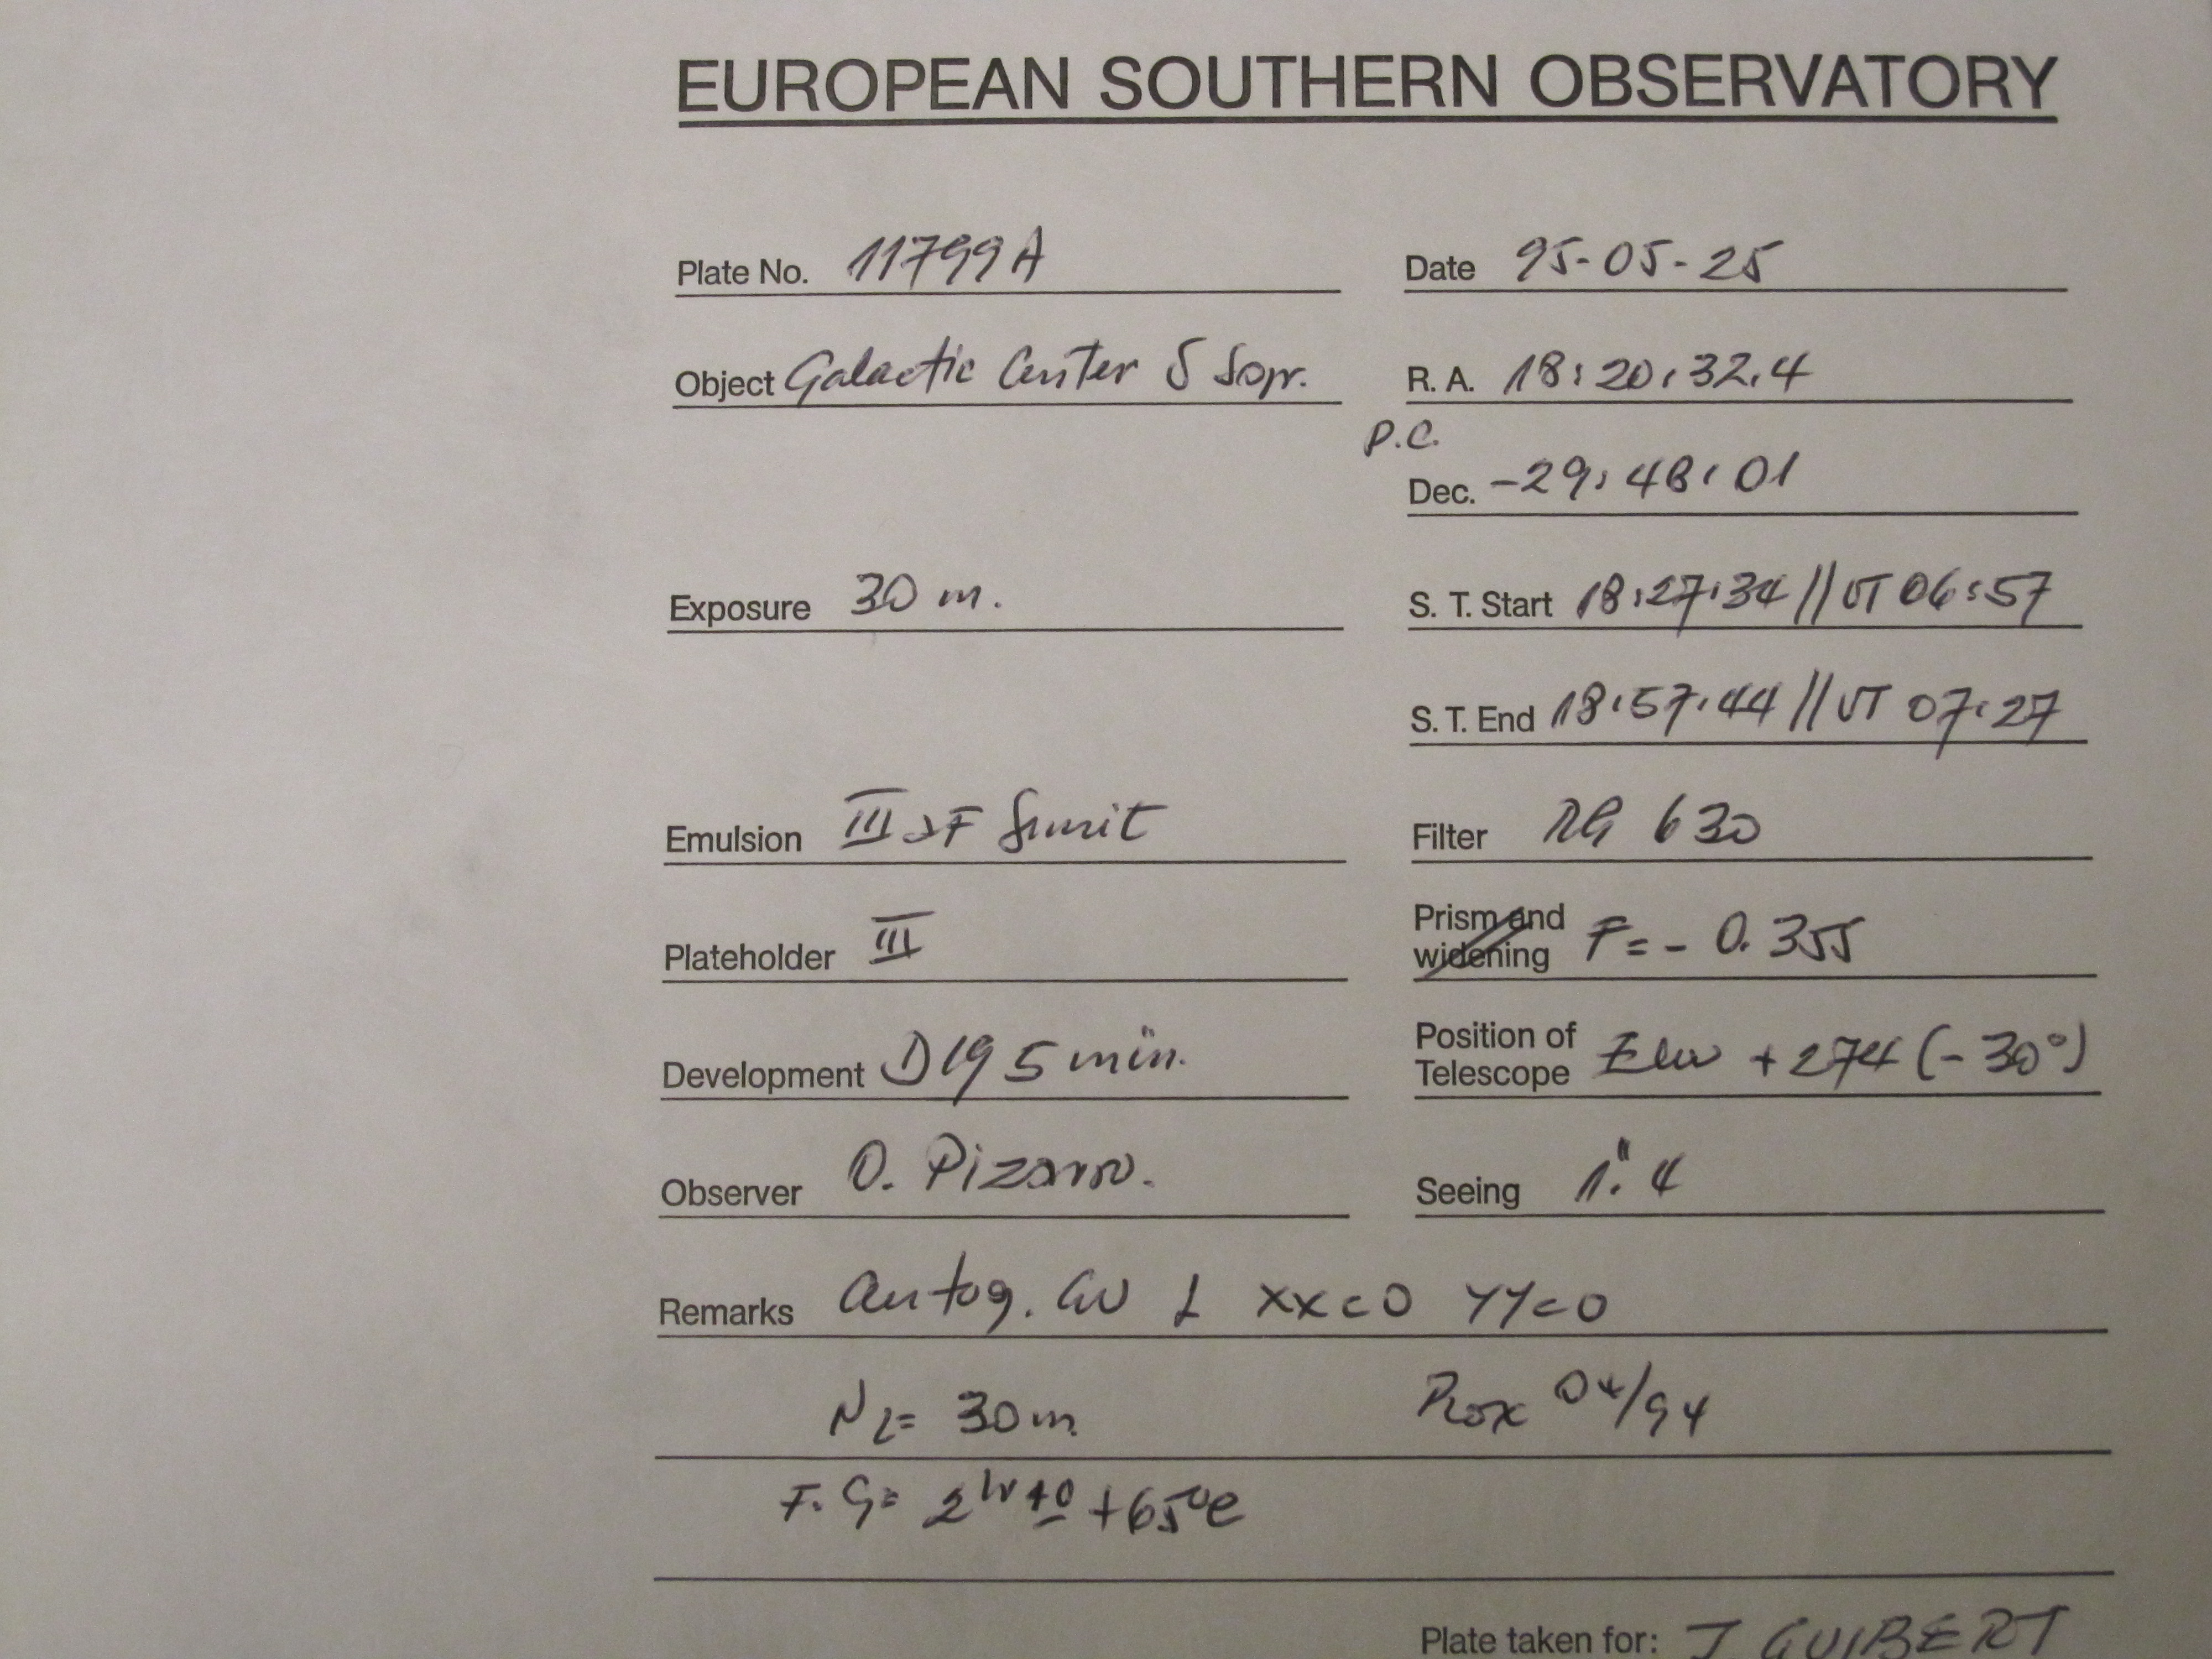 EUROPEAN SOUTHERN OBSERVATORY
Plate No. 11799A
Date 95-05-25
Object Galactic Center
R. A. 18:20:32.4
P.C.
Dec. -29:48:01
Exposure 30 m.
S. T. Start 18:27:34 // UT 06:57
S. T. End 18:57:44 // UT 07:27
Emulsion III aF
Filter RG 630
Plateholder III
Prism and widening F= - 0.355
Development D19 5 min.
Position of Telescope +274 (-30°)
Observer O. Pizarro.
Seeing 1".4
Remarks autog. xx=0 yy=0
= 30m
/94
F. G=
Plate taken for: J GUIBERT